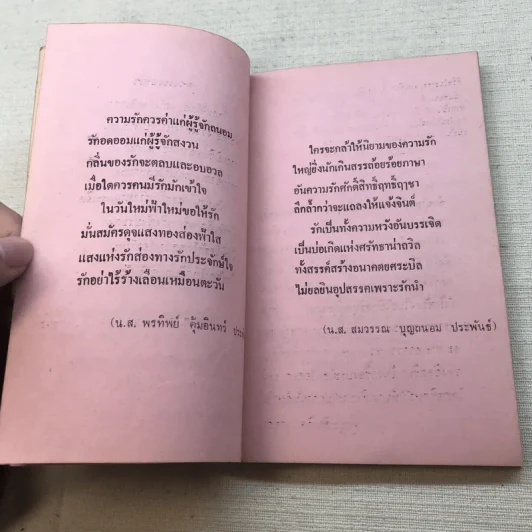 ความรักควรค่าแก่ผู้รู้จักถนอม
รักอดออมแก่ผู้รู้จักสงวน
กลิ่นของรักจะตลบและอบอวล
เมื่อใดควรคนมีรักมักเข้าใจ
ในวันใหม่ฟ้าใหม่ขอให้รัก
มั่นสมัครดุจแสงทองส่องฟ้าใส
แสงแห่งรักส่องทางรักประจักษ์ใจ
รักอย่าไร้ร้างเลือนเหมือนตะวัน
(น.ส. พรทิพย์ คุ้มอินทร์
ใครจะกล้าให้นิยามของความรัก
ใหญ่ยิ่งนักเกินสรรถ้อยร้อยภาษา
อันความรักศักดิ์สิทธิ์ฤทธิ์ฤๅชา
ลึกล้ำกว่าจะแถลงให้แจ้งจินต์
รักเป็นทั้งความหวังอันบรรเจิด
เป็นบ่อเกิดแห่งศรัทธาน่าถวิล
ทั้งสรรค์สร้างอนาคตยศระบิล
ไม่ยลยินอุปสรรคเพราะรักนำ
(น.ส. สมวรรณ บุญถนอม ประพันธ์)